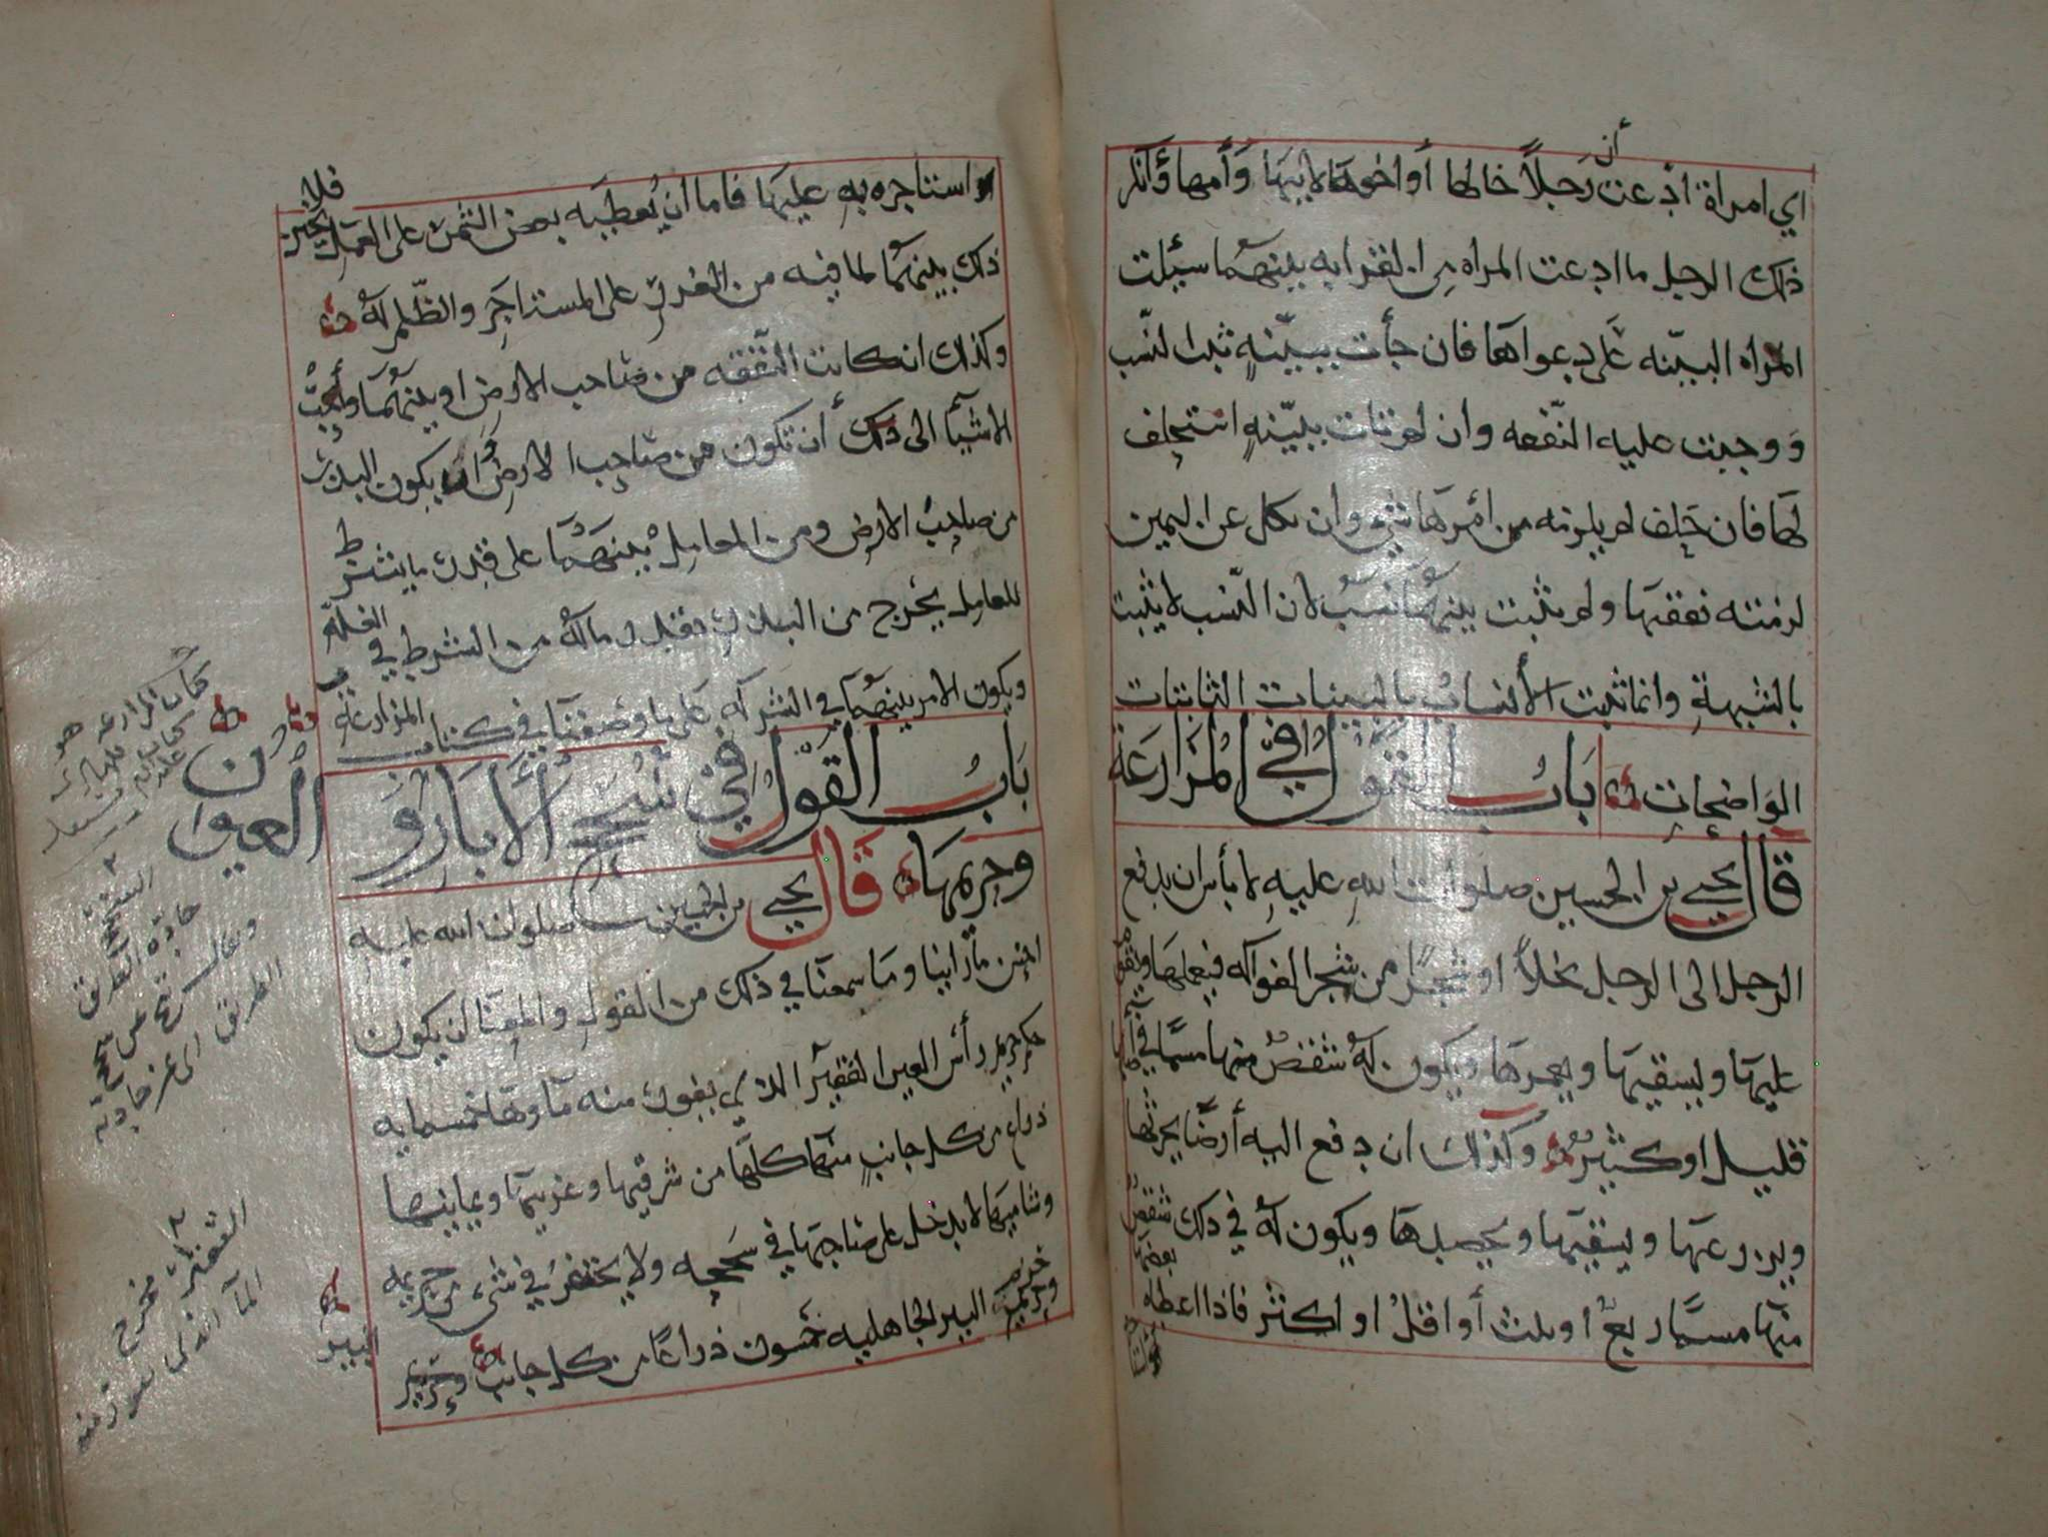 أن
اي امراة ادعت رجلاً خالها أو اخوها لابيها وأمها وانكر
ذلك الرجل ما ادعت المراه من القرابه بينهما سيلت
المراه البينه على دعواها فان جأت ببينهٍ ثبت النسب
ووجبت عليه النفقه وان لم تات ببينهٍ استحلف
لها فان حلف لم يلزمه من أمرها شي وان نكل عن اليمين
لزمته نفقتها ولم يثبت بينهما نسب لان النسب لا يثبت
بالشبهة وانما تثبت الأنساب بالبينات الثابتات
الواضحات باب القول في المزارعة
قال يحيي بن الحسين صلوات الله عليه لا بأس ان يدفع
الرجل الى الرجل نخلاً او شجرًا من شجر الفواكه فيعملها ويقوم
عليها ويسقيها ويعمرها ويكون له شقص منها مسمًا في
قليل او كثير وكذلك ان دفع اليه أرضًا يحرثها
ويزرعها ويسقيها ويحصدها ويكون له في ذلك شقص
بعضها
منها مسمًا ربع او ثلث أو اقل او اكثر فاذا اعطاه
استاجره به عليها فاما أن يعطيه بعض الثمن على العمل فلا يجوز
ذلك بينهما لما فيه من الغرر على المستاجر والظلم له
وكذلك ان كانت النفقه من صاحب الارض او بينهما وأحب
الاشيآ الى ذلك أن تكون من صاحب الارض أو يكون البذر
من صاحب الارض ومن المعامل بينهما على قدر ما يشترط
للعامل يخرج من البذر بقدر ماله من الشرط في الغله
ويكون الامر بينهما في الشركه على ما وصفنا في كتاب المزارعه
باب القول في سحح الأبار والعيون
وحريمها قال يحيي بن الحسين صلوات الله عليه
احسن ما رأينا وما سمعنا في ذلك من القول والمعنا ان يكون
حريم رأس العين الفقير الذي يفور منه ماوها خمسمايه
ذراع من كل جانب منها كلها من شرقيها وغربيها ويمانيها
وشاميها لا يدخل على صاحبها في سححه ولا يحتفر في شيء من حريمه
وحريم البير الجاهليه خمسون ذراعًا من كل جانب وحريم
البير
كتاب المزارعه هو
جادة الطرق
الطرق اي عن جادته
الفقير مخرج
المآ الذي يفور منه